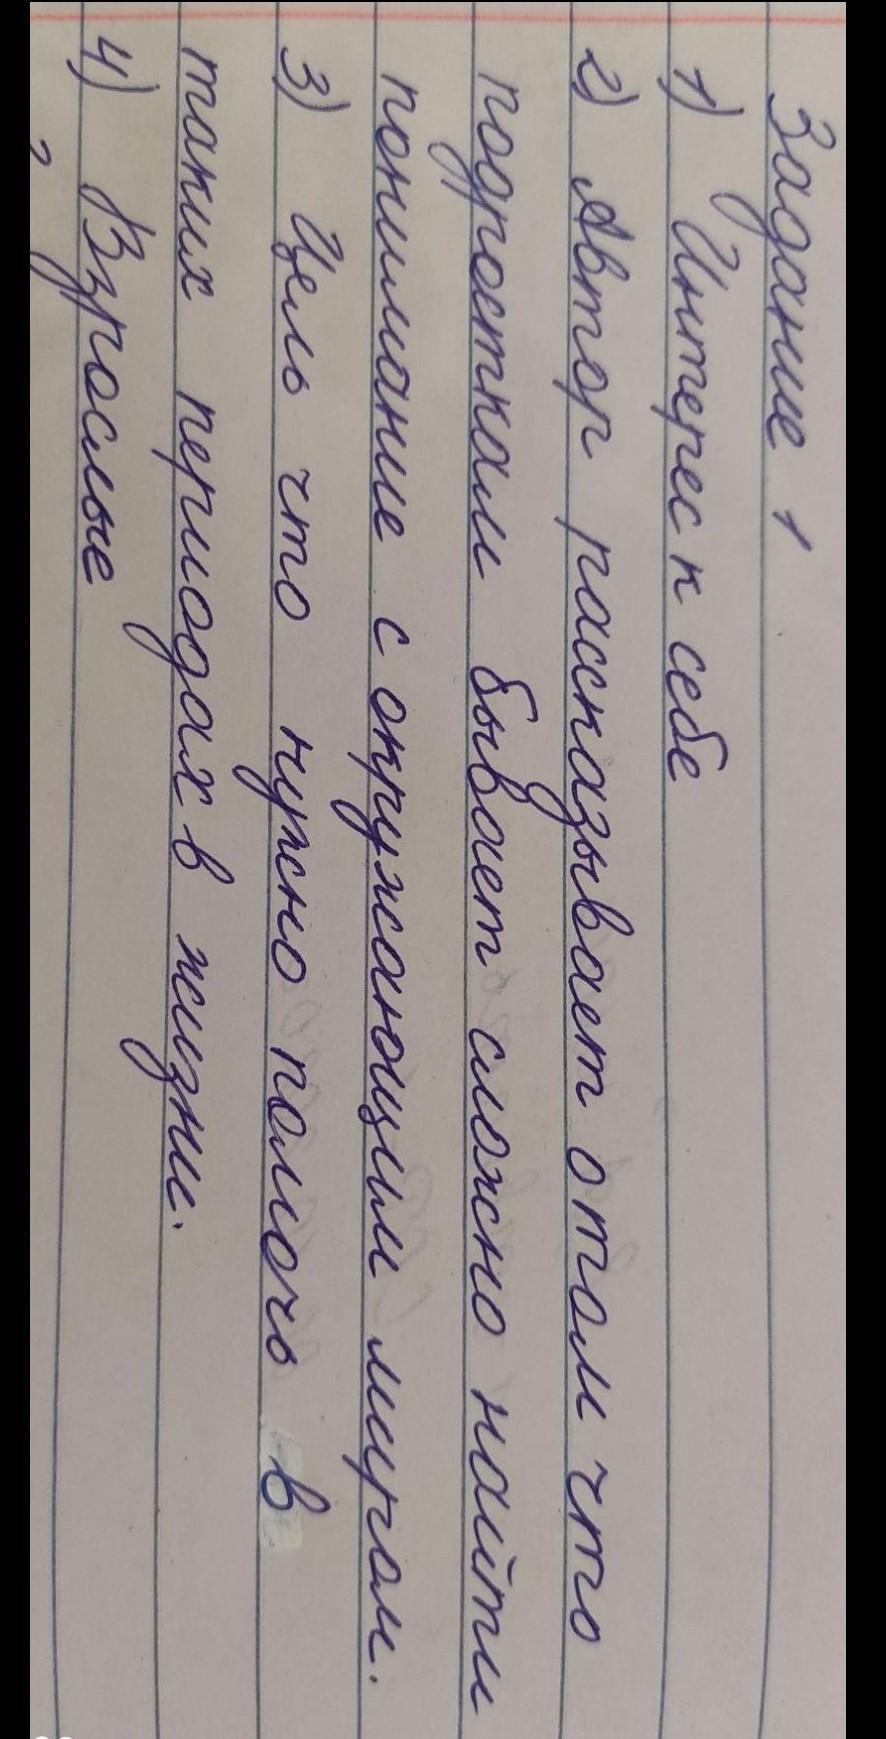 Задание 1
1) Интерес к себе
2) Автор рассказывает о том что
подросткам бывает сложно найти
понимание с окружающим миром.
3) Цель что нужно помочь в
таких периодах в жизни.
4) Взрослые